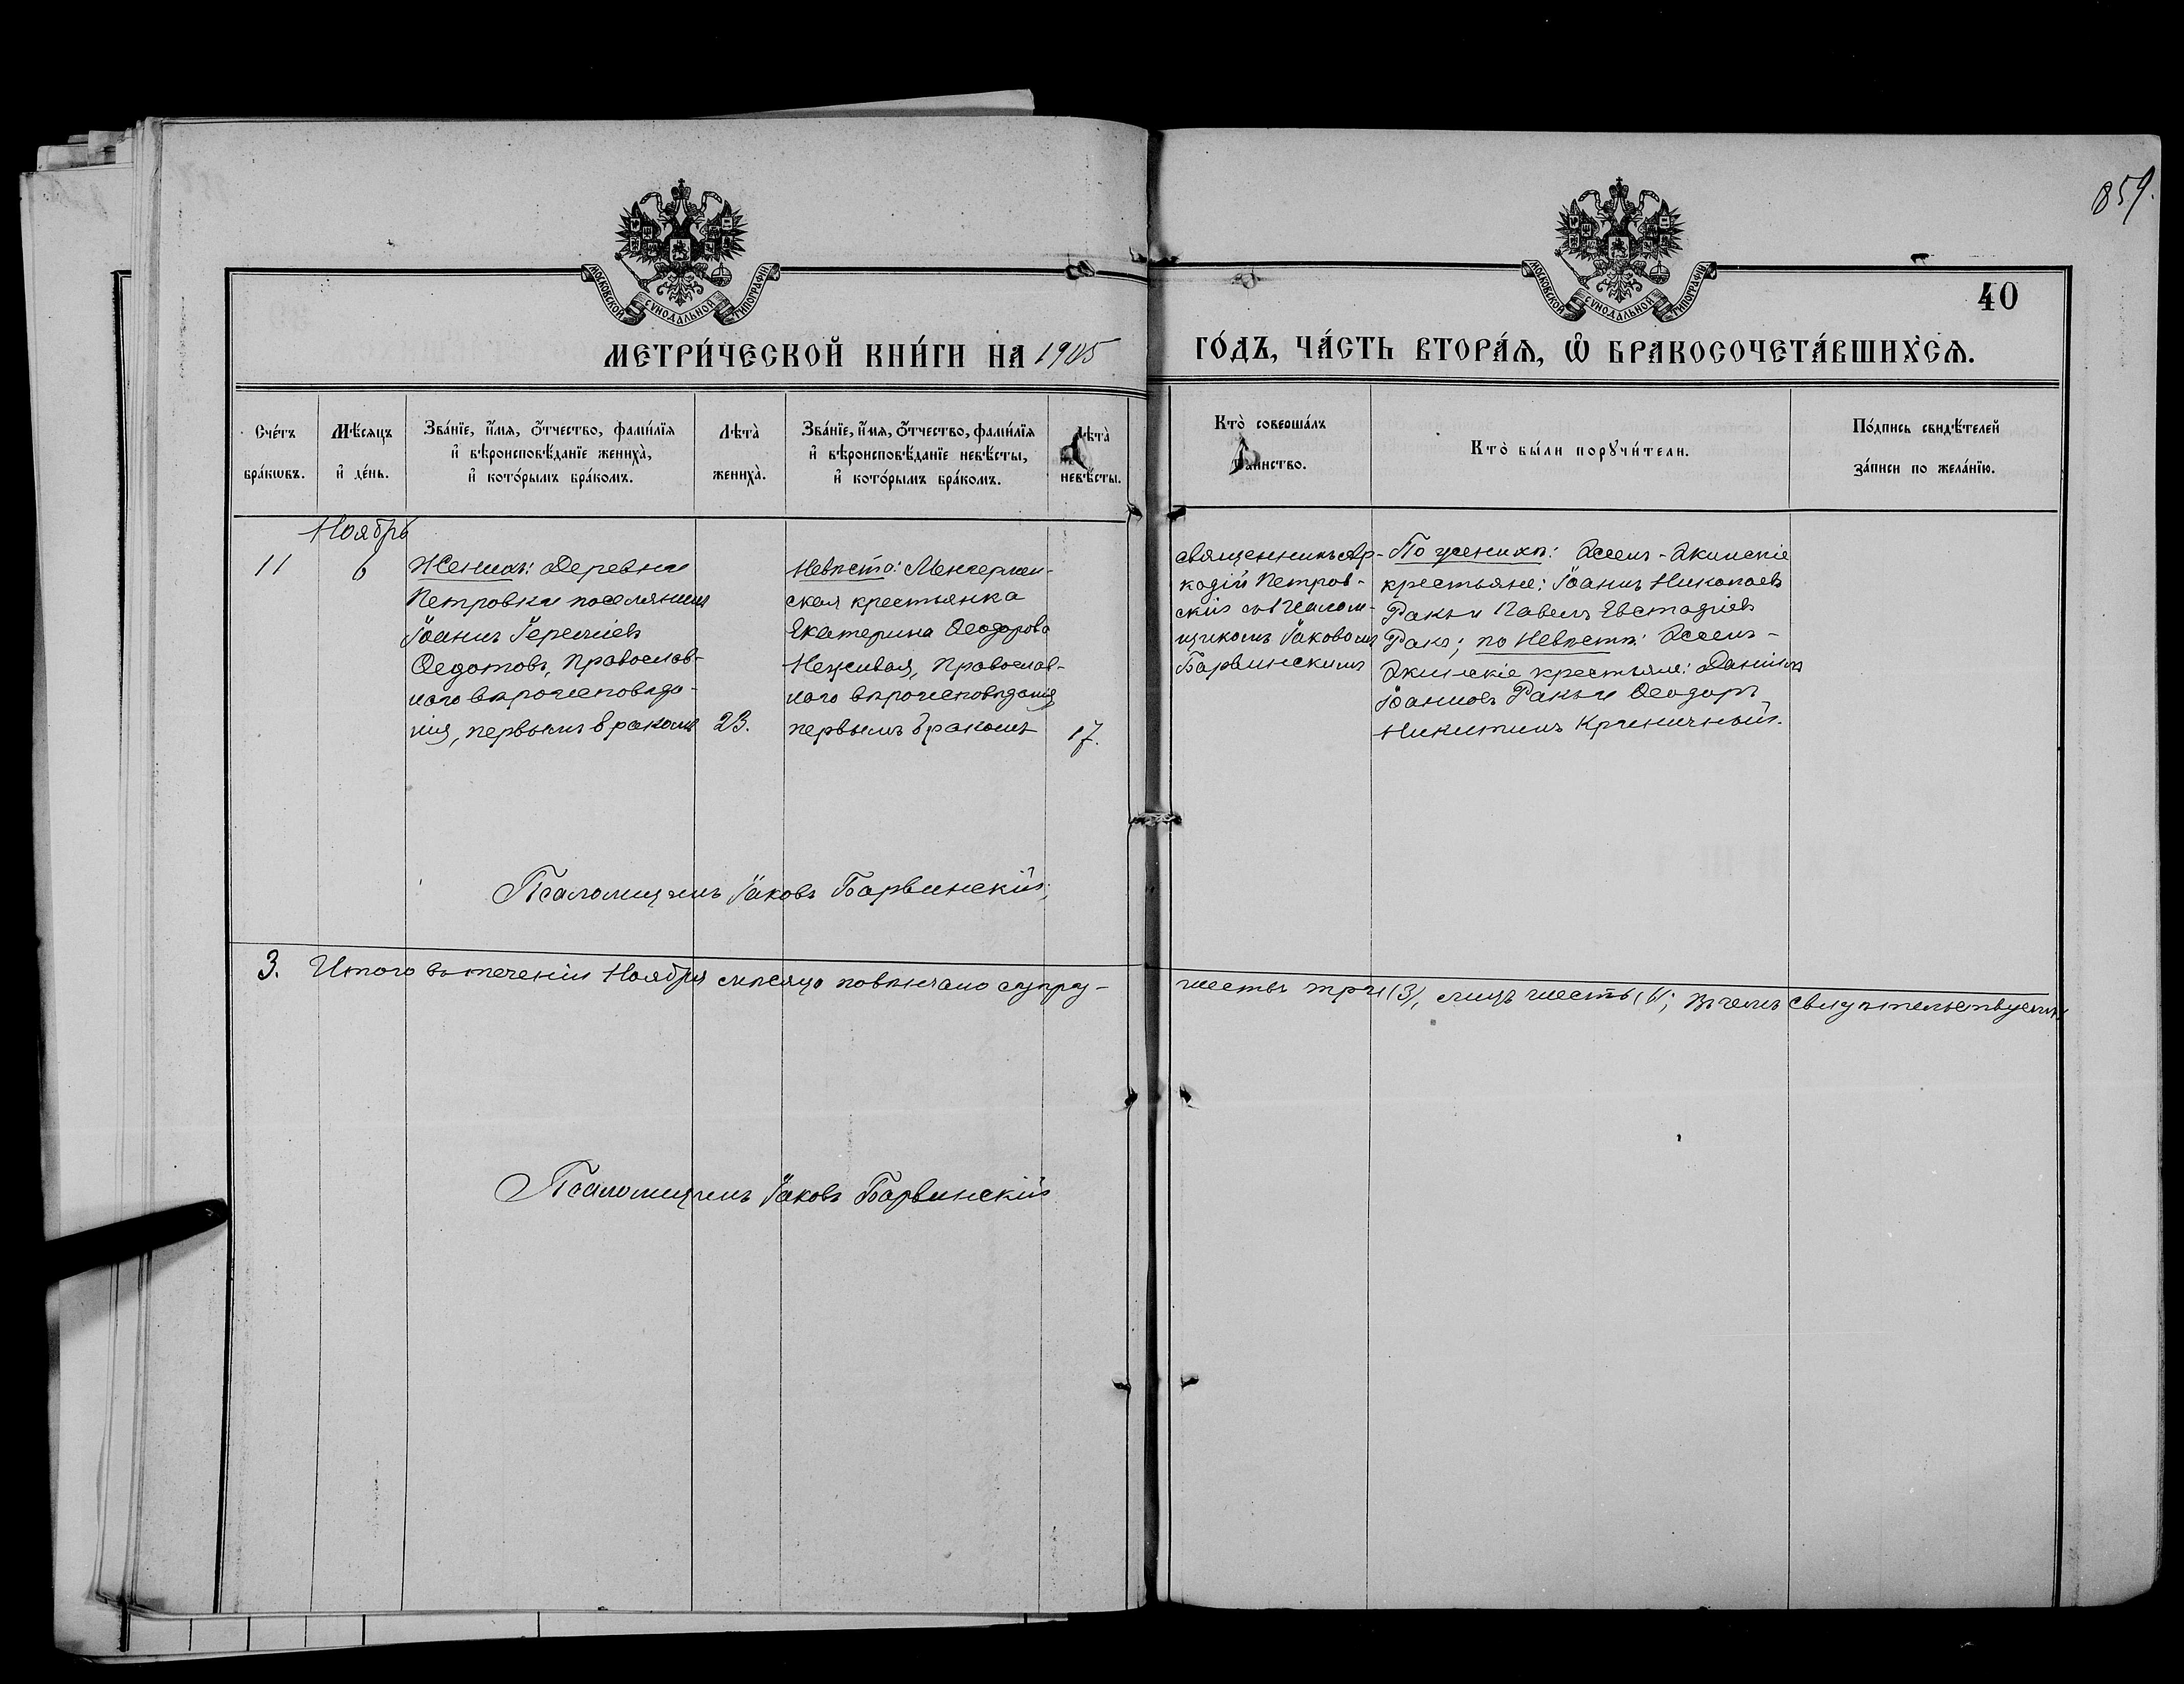 859.
МОСКОВСКОЙ СѴНОДАЛЬНОЙ ТИПОГРАФІИ
МОСКОВСКОЙ СѴНОДАЛЬНОЙ ТИПОГРАФІИ
40
МЕТРИ́ЧЕСКОЙ КНИ́ГИ НА 1905 ГО́ДЪ, ЧА́СТЬ ВТОРА́Ѧ, Ѽ БРАКОСОЧЕТА́ВШИХСѦ.
Сче́тъ
бра́кѡвъ.
Мѣ́сяцъ
и҆ де́нь.
Зва́нїе, и҆́мя, о҆́тчество, фами́лїя
и҆ вѣроисповѣ́данїе жениха̀,
и҆ кото́рымъ бра́комъ.
Лѣта̀
жениха̀.
Зва́нїе, и҆́мя, о҆́тчество, фами́лїя
и҆ вѣроисповѣ́данїе невѣ́сты,
и҆ кото́рымъ бра́комъ.
Лѣта̀
невѣ́сты.
Кто̀ соверша́лъ
таинство.
Кто̀ бы́ли порꙋчи́тели.
По́дпись свидѣ́телей
за́писи по жела́нїю.
Ноябрь
11
6
Женихъ: Деревни
Петровки поселянинъ
Іоаннъ Іереміевъ
Ѳедотовъ, Православ-
наго вѣроисповѣда-
нія, первымъ бракомъ
23.
Невѣста: Менгермен-
ская крестьянка
Екатерина Ѳеодорова
Неживая, Православ-
наго вѣроисповѣданія
первымъ бракомъ
17.
Священникъ Ар-
кадій Петров-
скій съ Псалом-
щикомъ Іаковомъ
Барвинскимъ
По женихѣ: -Экинскіе
крестьяне: Іоаннъ Николаевъ
Ракъ и Павелъ Евстафіевъ
Ракъ; по Невѣстѣ:
Экинскіе крестьяне: Даніилъ
Іоанновъ Ракъ и Ѳеодоръ
Никитинъ Криничный.
Псаломщикъ Іаковъ Барвинскій.
3. Итого въ теченіи Ноября мѣсяца повѣнчано супру-
жествъ три (3), лицъ шесть (6); въ чемъ свидѣтельствуемъ
Псаломщикъ Іаковъ Барвинскій